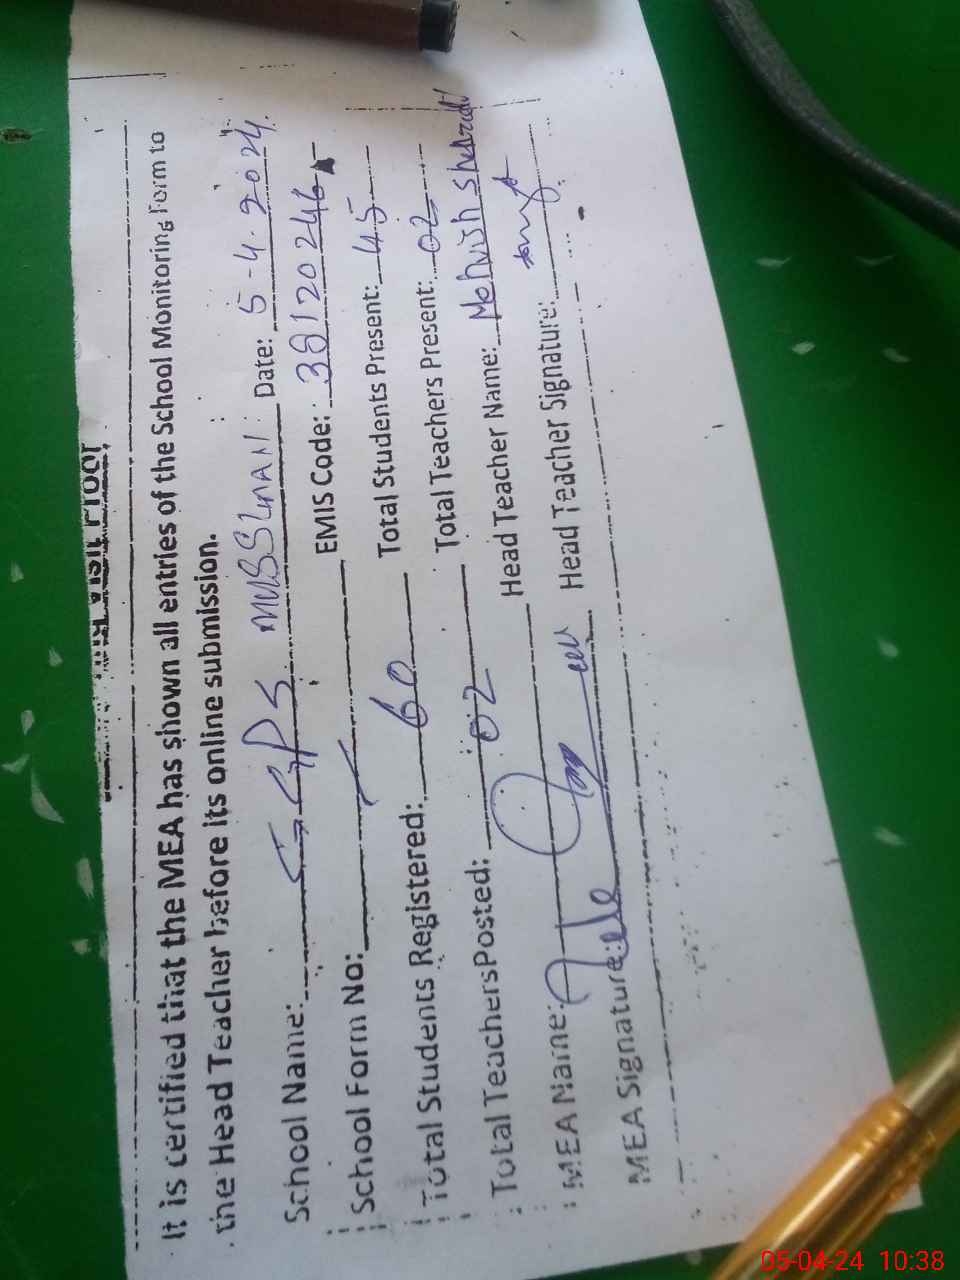 Visit Proof
It is certified that the MEA has shown all entries of the School Monitoring Form to
the Head Teacher before its online submission.
School Name: GGPS Date: 5-4-2024.
School Form No: EMIS Code: 38120246
Total Students Registered: 60 Total Students Present: 45
Total Teachers Posted: 02 Total Teachers Present: 02
MEA Name: Head Teacher Name: Mehvish Shehzadi
MEA Signature: Head Teacher Signature:
05-04-24 10:38